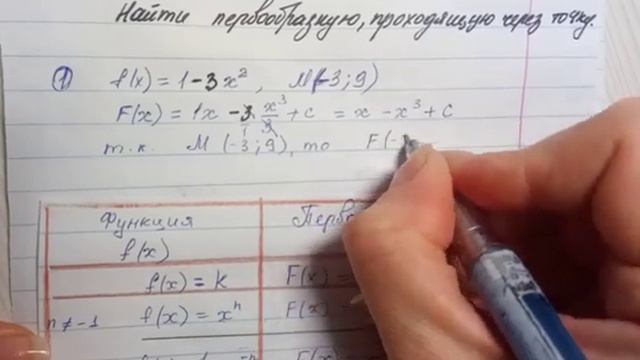 Найти первообразную, проходящую через точку.
① f(x) = 1 - 3x², M(-3; 9)
F(x) = 1x - 3 · x³/3 + c = x - x³ + c
т.к. M (-3; 9), то F(-
Функция Перво
f(x)
f(x) = k F(x) =
n ≠ -1 f(x) = xⁿ F(x) =